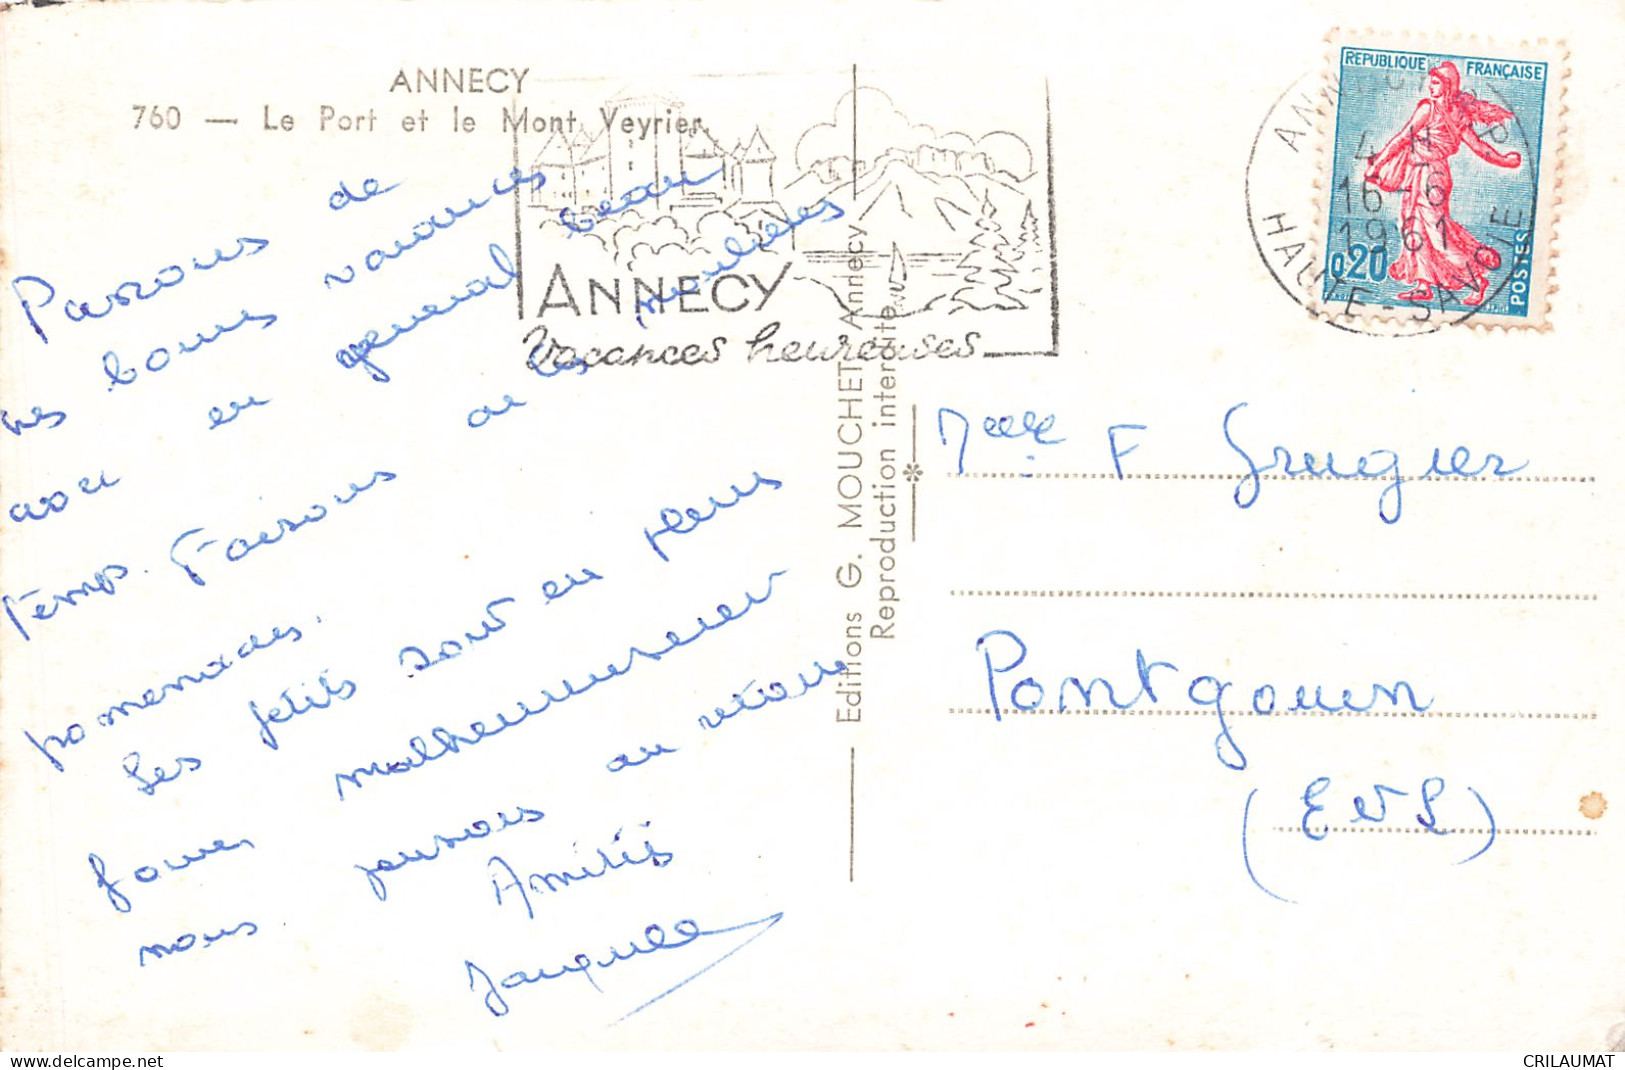 ANNECY
760 — Le Port et le Mont Veyrier
Passons de
très bonnes vacances
avec en général beau
temps. Faisons de
promenades.
Les petits sont en pleins
formes malheureusement
nous pensons au retour
Amitiés
Jacqueline
ANNECY
Vacances heureuses
Editions G. MOUCHET Annecy
Reproduction interdite
REPUBLIQUE FRANÇAISE
0,20
POSTES
16-6
1961
HAUTE-SAVOIE
F Grugier
Pontgouin
(E et L)
www.delcampe.net
CRILAUMAT